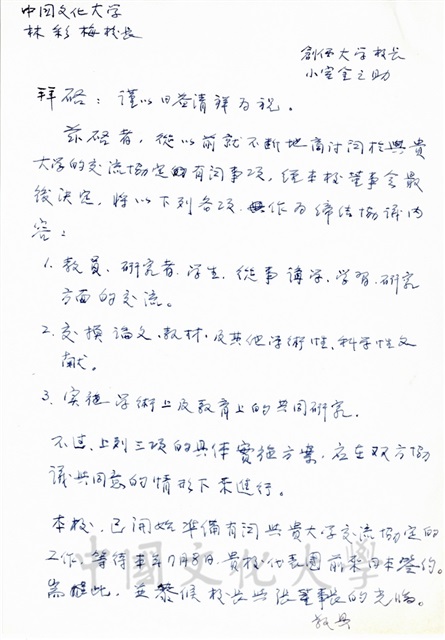 中国文化大学
林彩梅校長
創価大学校長
小室金之助
拜啓：謹以日益清祥为祝。
茲啓者，從以前就不断地商讨関於與貴
大学的交流協定的有関事項，経本校董事会最
後決定，将以下列各項，作为締结協議内
容：
1. 教員、研究者、学生、從事講学、学習、研究
方面的交流。
2. 交換論文、教材、及其他学術性、科学性文
献。
3. 实施学術上及教育上的共同研究。
不过，上列三項的具体實施方案，应在双方協
議共同意的情形下来進行。
本校，已開始準備有関與貴大学交流協定的
工作，等待本年7月8日，貴校代表團前来日本签约。
此，並恭候校長與张董事長的光临。
敬具
中國文化大學